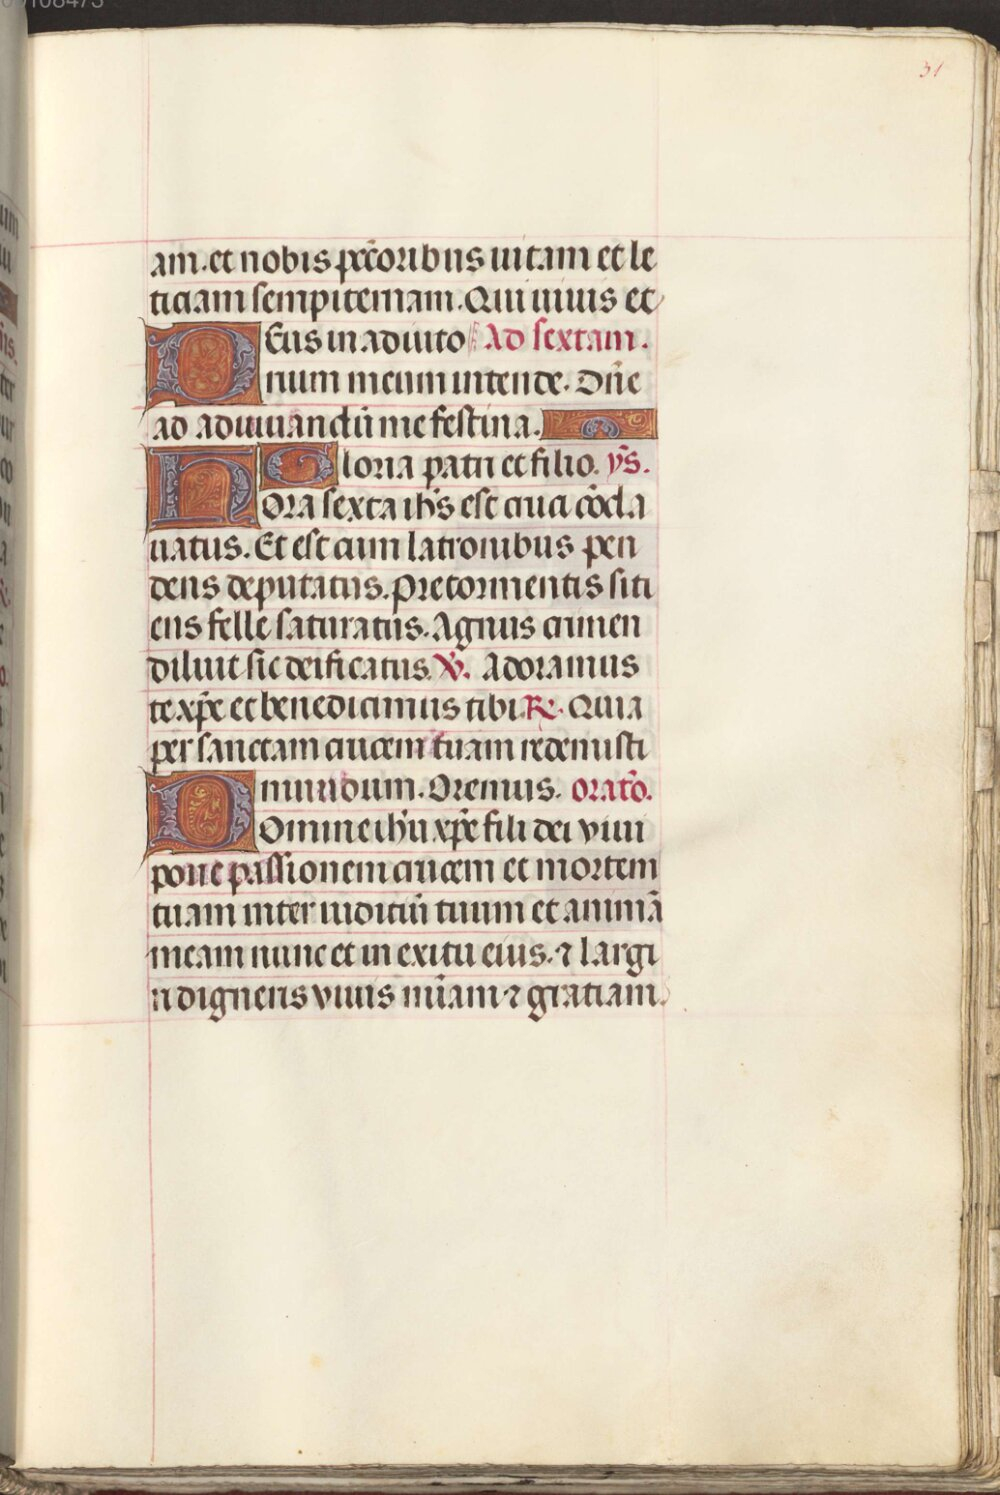 31
am. et nobis pctoribus uitam et le
ticiam sempiternam. Qui uiuis et
DEus in adiuto Ad sextam.
rium meum intende. Dñe
ad adiuuandũ me festina.
Gloria patri et filio. ỹs.
HOra sexta ihs est cruci cõcla
uatus. Et est cum latronibus pen
dens deputatus. Pre tormentis siti
ens felle saturatus. Agnus crimen
diluit sic deificatus. ℣. Adoramus
te xp̃e et benedicimus tibi. ℟. Quia
per sanctam crucem tuam redemisti
mundum. Oremus. oratõ.
DOmine ihũ xp̃e fili dei viui
pone passionem crucem et mortem
tuam inter iudiciũ tuum et animã
meam nunc et in exitu eius. ⁊ largi
ri digneris viuis miãm ⁊ gratiam.